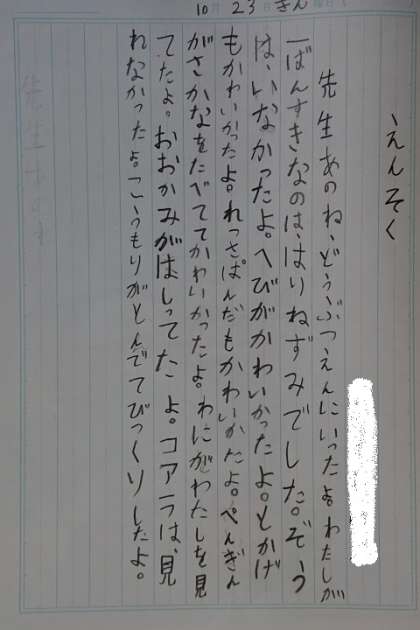 10月23日きん曜日
えんそく
先生あのね、どうぶつえんにいったよ。わたしが
一ばんすきなのは、はりねずみでした。ぞう
は、いなかったよ。へびがかわいかったよ。とかげ
もかわいかったよ。れっさぱんだもかわいかたよ。ぺんぎん
がさかなをたべててかわいかったよ。わにがわたしを見
てたよ。おおかみがはしってたよ。コアラは、見
れなかったよ。こうもりがとんでてびっくりしたよ。